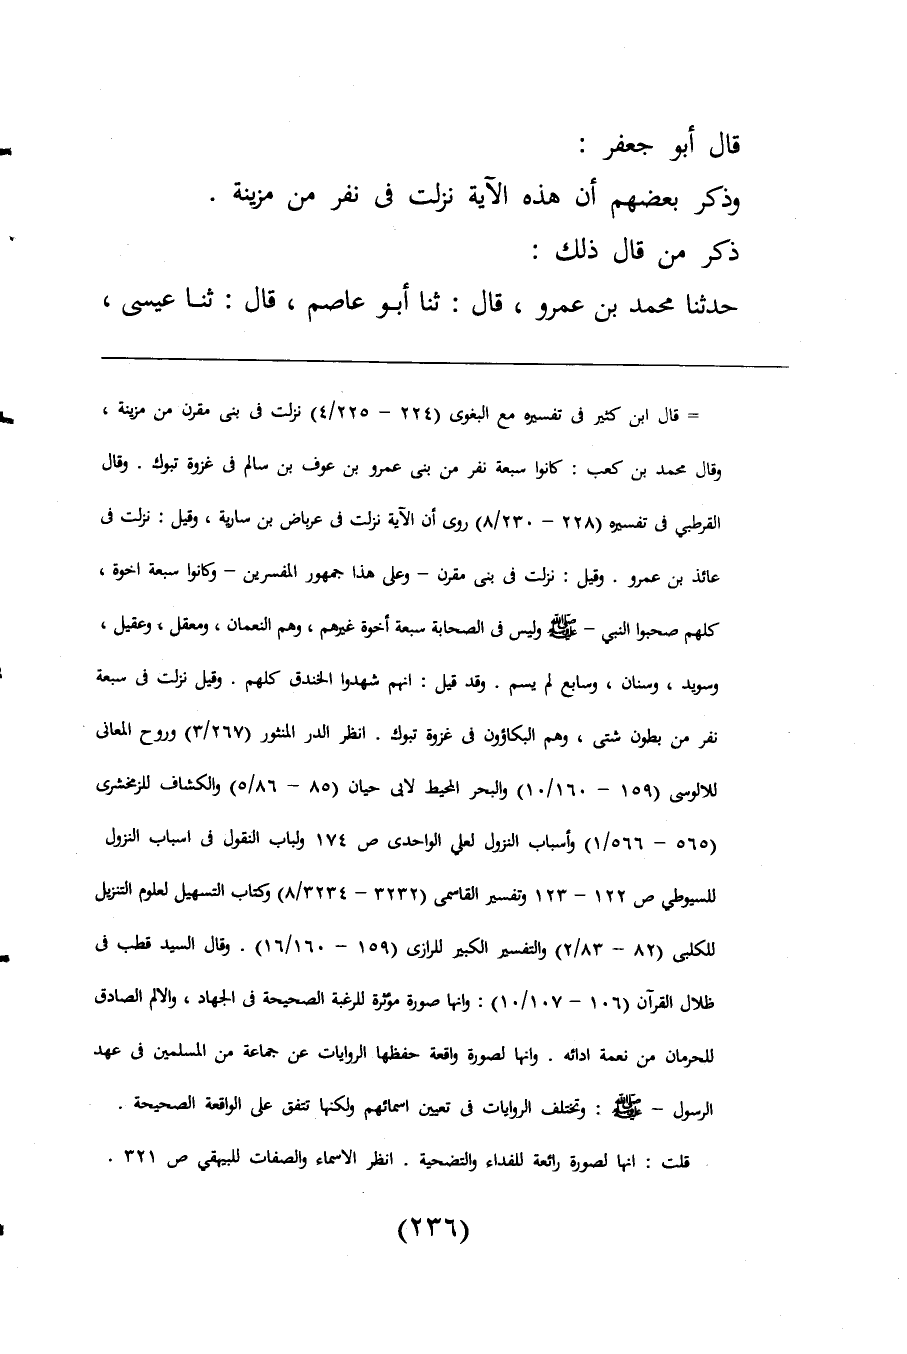 قال أبو جعفر :
وذكر بعضهم أن هذه الآية نزلت فى نفر من مزينة .
ذكر من قال ذلك :
حدثنا محمد بن عمرو ، قال : ثنا أبو عاصم ، قال : ثنا عيسى ،
= قال ابن كثير فى تفسيره مع البغوى (٢٢٤ – ٤/٢٢٥) نزلت فى بنى مقرن من مزينة ،
وقال محمد بن كعب : كانوا سبعة نفر من بنى عمرو بن عوف بن سالم فى غزوة تبوك . وقال
القرطبي فى تفسيره (٢٢٨ – ٨/٢٣٠) روى أن الآية نزلت فى عرباض بن سارية ، وقيل : نزلت فى
عائذ بن عمرو . وقيل : نزلت فى بنى مقرن – وعلى هذا جمهور المفسرين – وكانوا سبعة اخوة ،
كلهم صحبوا النبي – ﷺ وليس فى الصحابة سبعة أخوة غيرهم ، وهم النعمان ، ومعقل ، وعقيل ،
وسويد ، وسنان ، وسابع لم يسم . وقد قيل : انهم شهدوا الخندق كلهم . وقيل نزلت فى سبعة
نفر من بطون شتى ، وهم البكاؤون فى غزوة تبوك . انظر الدر المنثور (٣/٢٦٧) وروح المعانى
للالوسى (١٥٩ – ١٠/١٦٠) والبحر المحيط لابى حيان (٨٥ – ٥/٨٦) والكشاف للزمخشرى
(٥٦٥ – ١/٥٦٦) وأسباب النزول لعلي الواحدى ص ١٧٤ ولباب النقول فى اسباب النزول
للسيوطي ص ١٢٢ – ١٢٣ وتفسير القاسمى (٣٢٣٢ – ٨/٣٢٣٤) وكتاب التسهيل لعلوم التنزيل
للكلبى (٨٢ – ٢/٨٣) والتفسير الكبير للرازى (١٥٩ – ١٦/١٦٠) . وقال السيد قطب فى
ظلال القرآن (١٠٦ – ١٠/١٠٧) : وانها صورة مؤثرة للرغبة الصحيحة فى الجهاد ، والالم الصادق
للحرمان من نعمة ادائه . وانها لصورة واقعة حفظها الروايات عن جماعة من المسلمين فى عهد
الرسول – ﷺ : وتختلف الروايات فى تعيين اسمائهم ولكنها تتفق على الواقعة الصحيحة .
قلت : انها لصورة رائعة للفداء والتضحية . انظر الاسماء والصفات للبيهقي ص ٣٢١ .
(٢٣٦)